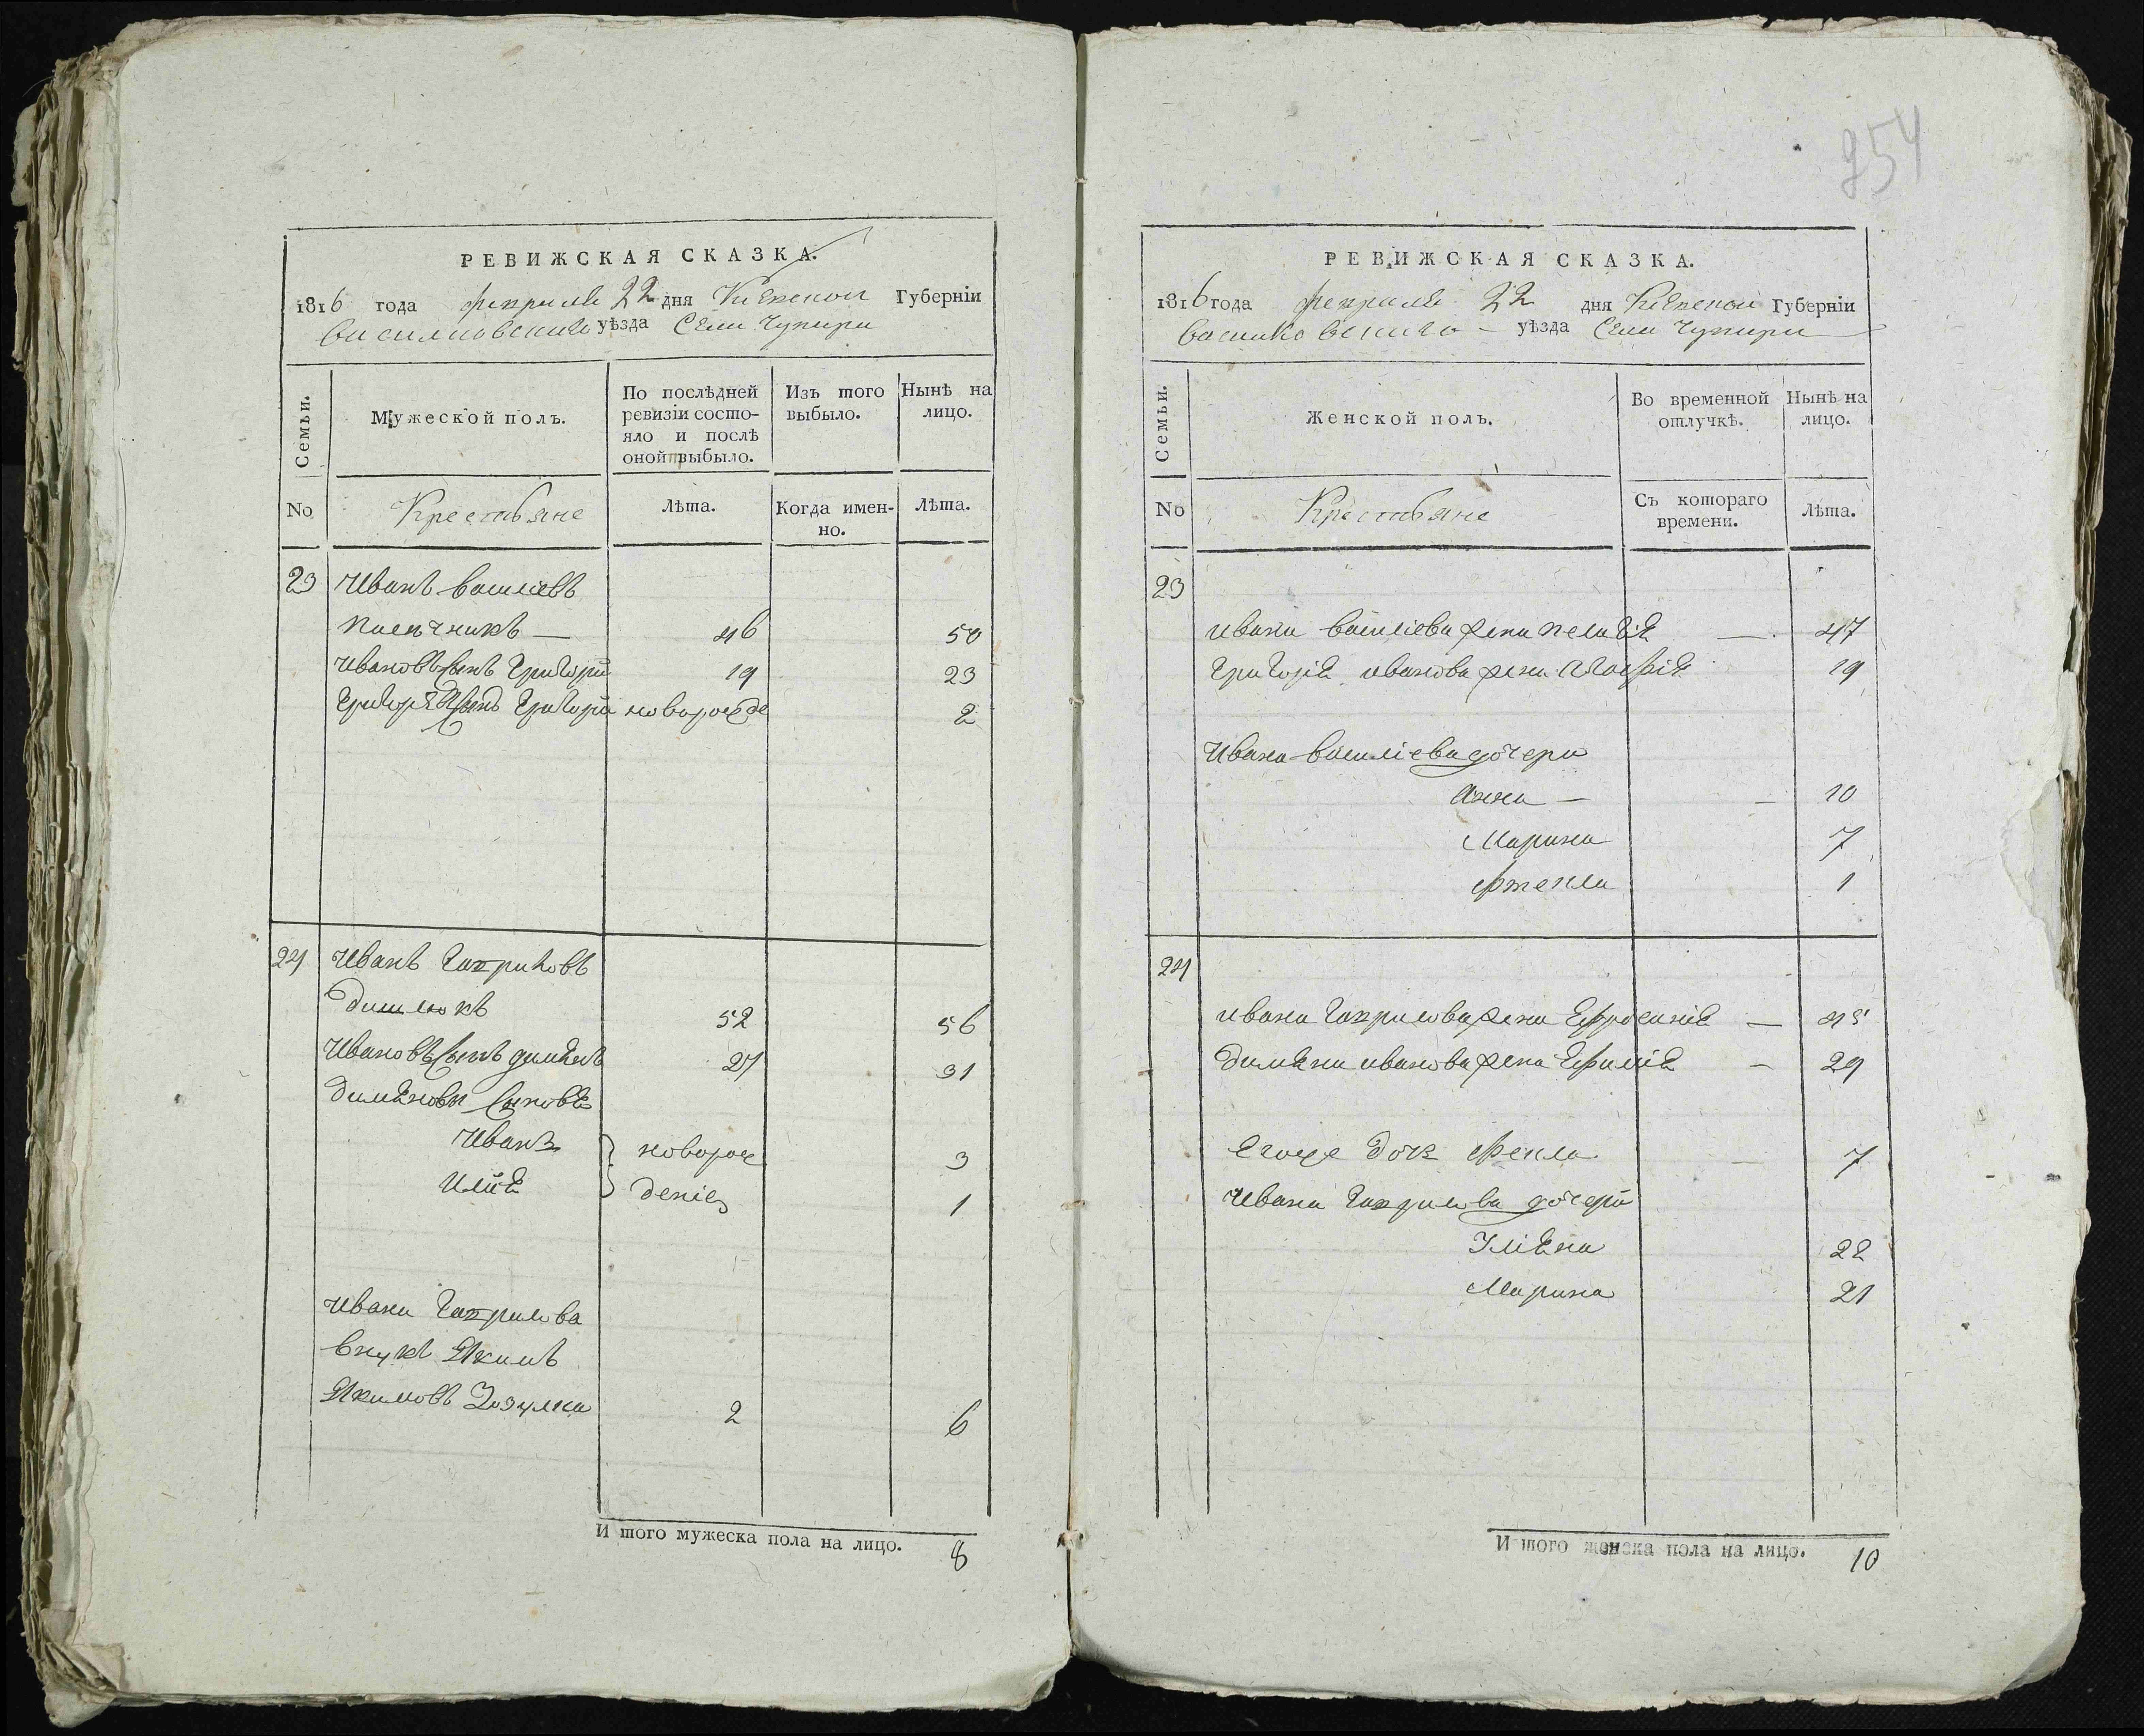 РЕВИЖСКАЯ СКАЗКА.
1816 года февраля 22 дня Кіевской Губерніи
Василковского уѣзда Села Чупири
Семьи.
Мужеской полъ.
По послѣдней ревизіи состояло и послѣ оной выбыло.
Изъ того выбыло.
Нынѣ на лицо.
No
Крестьяне
Лѣта.
Когда именно.
Лѣта.
23 Иванъ Василієвъ
46 50
Ивановъ Сынъ Григорій 19 23
Григорія Сынъ Григорій новорожде 2
24 Иванъ Гавриловъ
52 56
Ивановъ Сынъ Димянъ 27 31
Димяновы Сыновя
Иванъ новорож 3
Илія деніе 1
Ивана Гаврилова
внукъ Якимъ
Якимовъ Зозуля 2 6
И того мужеска пола на лицо. 8
254
РЕВИЖСКАЯ СКАЗКА.
1816 года февраля 22 дня Кіевской Губерніи
Василковского уѣзда Села Чупири
Семьи.
Женской полъ.
Во временной отлучкѣ.
Нынѣ на лицо.
No
Крестьяне
Съ котораго времени.
Лѣта.
23
Ивана Василієва жена Пелагія — 47
Григорія Иванова жена Агафія 19
Ивана Василієва дочери
Анна — — 10
Марина 7
Фтекла 1
24
Ивана Гаврилова жена Ефросинія — 45
Димяна Иванова жена Ефимія — 29
Егоже дочь Фекла — 7
Ивана Гаврилова дочери
Уліяна 22
Марина 21
И того женска пола на лицо. 10